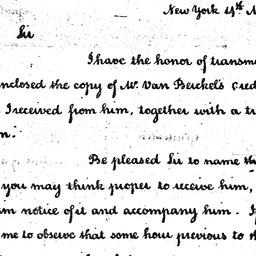 New York 4th
Sir
I have the honor of transm
enclosed the copy of Mr. Van Berckel's cred
I received from him, together with a tr
Be pleased Sir to name th
you may think proper to receive him,
notice of it and accompany him.
me to observe that some hour previous to